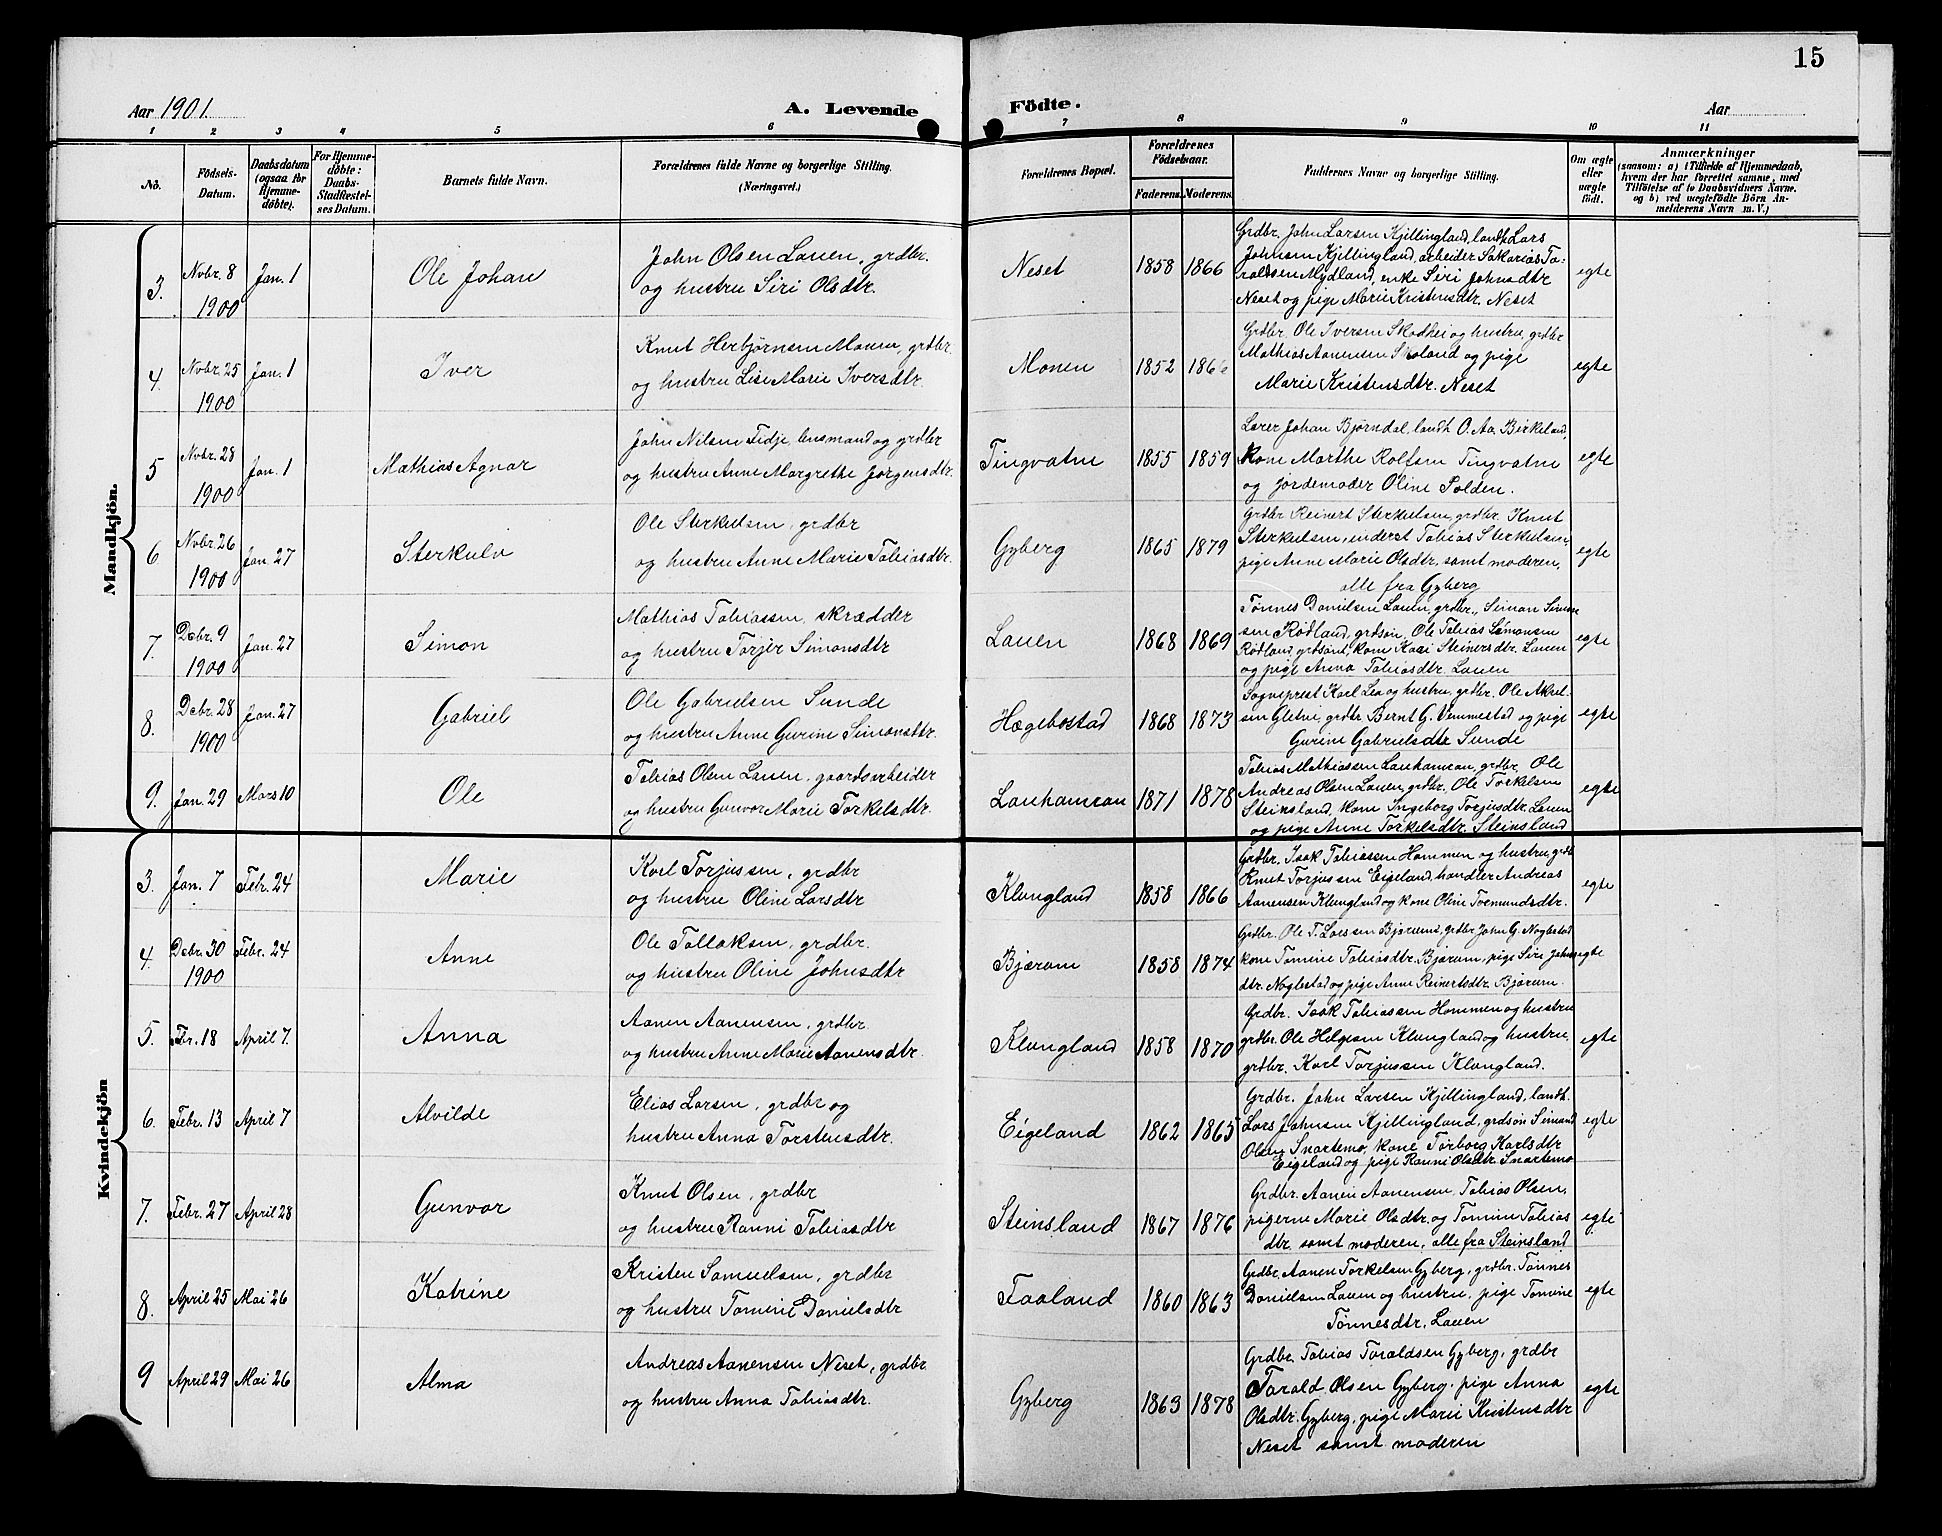 15
Aar 1901.
A. Levende Födte.
Aar
1 2 3 4 5 6 7 8 9 10 11
No.
Födsels-
Datum.
Daabsdatum
(ogsaa for
Hjemme-
döbte).
For Hjemme-
döbte:
Daabs-
Stadfæstel-
ses Datum.
Barnets fulde Navn.
Forældrenes fulde Navne og borgerlige Stilling.
(Næringsvei.)
Forældrenes Bopæl.
Forældrenes
Födselsaar.
Faderens. Moderens.
Faddernes Navne og borgerlige Stilling.
Om ægte
eller
uægte
födt.
Anmærkninger
(saasom: a) i Tilfælde af Hjemmedaab,
hvem der har forrettet samme, med
Tilföielse af to Daabsvidners Navne.
og b) ved uægtefödte Börn An-
melderens Navn m. V.)
Mandkjön.
3. Novbr. 8 1900 Jan. 1 Ole Johan
John Olsen Lauen, grdbr.
og hustru Siri Olsdtr.
Neset 1858 1866
Grdbr. John Larsen Kjillingland, landh. Lars
Johnsen Kjillingland, arbeider Sakarias Ta-
raldsen Mydland, enke Siri Johnsdtr
Neset og pige Marie Kristensdtr. Neset
egte
4. Novbr. 25 1900 Jan. 1 Iver
Knut Herbjörnsen Monen, grdbr.
og hustru Lise Marie Iversdtr.
Monen 1852 1866
Grdbr. Ole Iversen Skodhei og hustru, grdbr
Mathias Aanensen Skeland og pige
Marie Kristensdtr. Neset
egte
5 Novbr. 28 1900 Jan. 1 Mathias Agnar
John Nilsen Fidje, lensmand og grdbr
og hustru Anne Margrethe Jörgensdtr.
Tingvatne 1855 1859
Lærer Johan Björndal, landh. O. Aa. Birkeland,
kone Marthe Rolfsen Tingvatne
og jordemoder Oline Solden.
egte
6 Novbr. 26 1900 Jan. 27 Sterkulv
Ole Sterkulsen, grdbr
og hustru Anne Marie Tobiasdtr.
Gyberg 1865 1879
Grdbr Reinert Sterkulsen, grdbr. Knut
Sterkulsen, inderst Tobias Sterkulsen,
pige Anne Marie Olsdtr. samt moderen,
alle fra Gyberg
egte
7. Debr. 9 1900 Jan. 27 Simon
Mathias Tobiassen, skrædder
og hustru Torjer Simonsdtr
Lauen 1868 1869
Tönnes Danielsen Lauen, grdbr., Simon Simon
sen Rödland, grdsön, Ole Tobias Simonsen
Rödland, grdsön, kone Kari Steinersdtr. Lauen
og pige Anna Tobiasdtr. Lauen
egte
8. Debr. 28 1900 Jan. 27 Gabriel
Ole Gabrielsen Sunde
og hustru Anne Gurine Simonsdtr.
Hægebostad 1868 1873
Sogneprest Karl Lea og hustru, grdbr. Ole Aksel-
sen Gletne, grdbr Bernt G. Vemmestad og pige
Gurine Gabrielsdtr Sunde
egte
9. Jan. 29 Mars 10 Ole
Tobias Olsen Lauen, gaardsarbeider
og hustru Gunvor Marie Torkelsdtr.
Lauhamran 1871 1878
Tobias Mathiassen Lauhamran, grdbr. Ole
Andreas Olsen Lauen, grdbr. Ole Torkelsen
Steinsland, kone Ingeborg Torjusdtr. Lauen
og pige Anne Torkelsdtr. Steinsland
egte
Kvindekjön
3. Jan. 7 Febr. 24 Marie
Karl Torjussen, grdbr
og hustru Oline Larsdtr
Klungland 1858 1866
Grdbr. Isak Tobiassen Hommen og hustru, grdb
Knut Torjussen Eigeland, handler Andreas
Aanensen Klungland og kone Oline Tormundsdtr.
egte
4. Debr. 30 1900 Febr. 24 Anne
Ole Tollaksen, grdbr.
og hustru Oline Johnsdtr
Bjærum 1858 1874
Grdbr. Ole T. Larssen Bjærum, grdbr John G. Noglestad
kone Tomine Tobiasdtr. Bjærum, pige Siri Johns
dtr. Noglestad og pige Anne Reinertsdtr. Bjærum.
egte
5. Febr. 18 April 7. Anna
Aanen Aanensen, grdbr.
og hustru Anne Marie Aanensdtr.
Klungland 1858 1870
Grdbr. Isak Tobiassen Hommen og hustru
grdbr. Ole Helgesen Klungland og hustru,
grdbr. Karl Torjussen Klungland.
egte
6. Febr. 13 April 7 Alvilde
Elias Larsen, grdbr og
hustru Anna Torstensdtr.
Eigeland 1862 1865
Grdbr. John Larsen Kjillingland, landh.
Lars Johnsen Kjillingland, grdsön Simand
Olsen Snartemo, kone Torborg Karlsdtr
Eigeland og pige Ranni Olsdtr. Snartemo
egte
7. Febr. 27 April 28 Gunvor
Knut Olsen, grdbr
og hustru Ranni Tobiasdtr
Steinsland 1867 1876
Grdbr. Aanen Aanensen, Tobias Olsen,
pigerne Marie Olsdtr. og Tomine Tobias
dtr. samt moderen, alle fra Steinsland
egte
8. April 25 Mai 26 Katrine
Kristen Samuelsen, grdbr
og hustru Tomine Danielsdtr
Faaland 1860 1863
Grdbr. Aanen Torkelsen Gyberg, grdbr. Tönnes
Danielsen Lauen og hustru, pige Tomine
Tönnesdtr. Lauen
egte
9 April 29 Mai 26 Alma
Andreas Aanensen Neset, grdbr
og hustru Anna Tobiasdtr.
Gyberg 1863 1878
Grdbr. Tobias Taraldsen Gyberg, grdbr
Tarald Olsen Gyberg, pige Anna
Olsdtr. Gyberg, pige Marie Kristensdtr
Neset samt moderen
egte